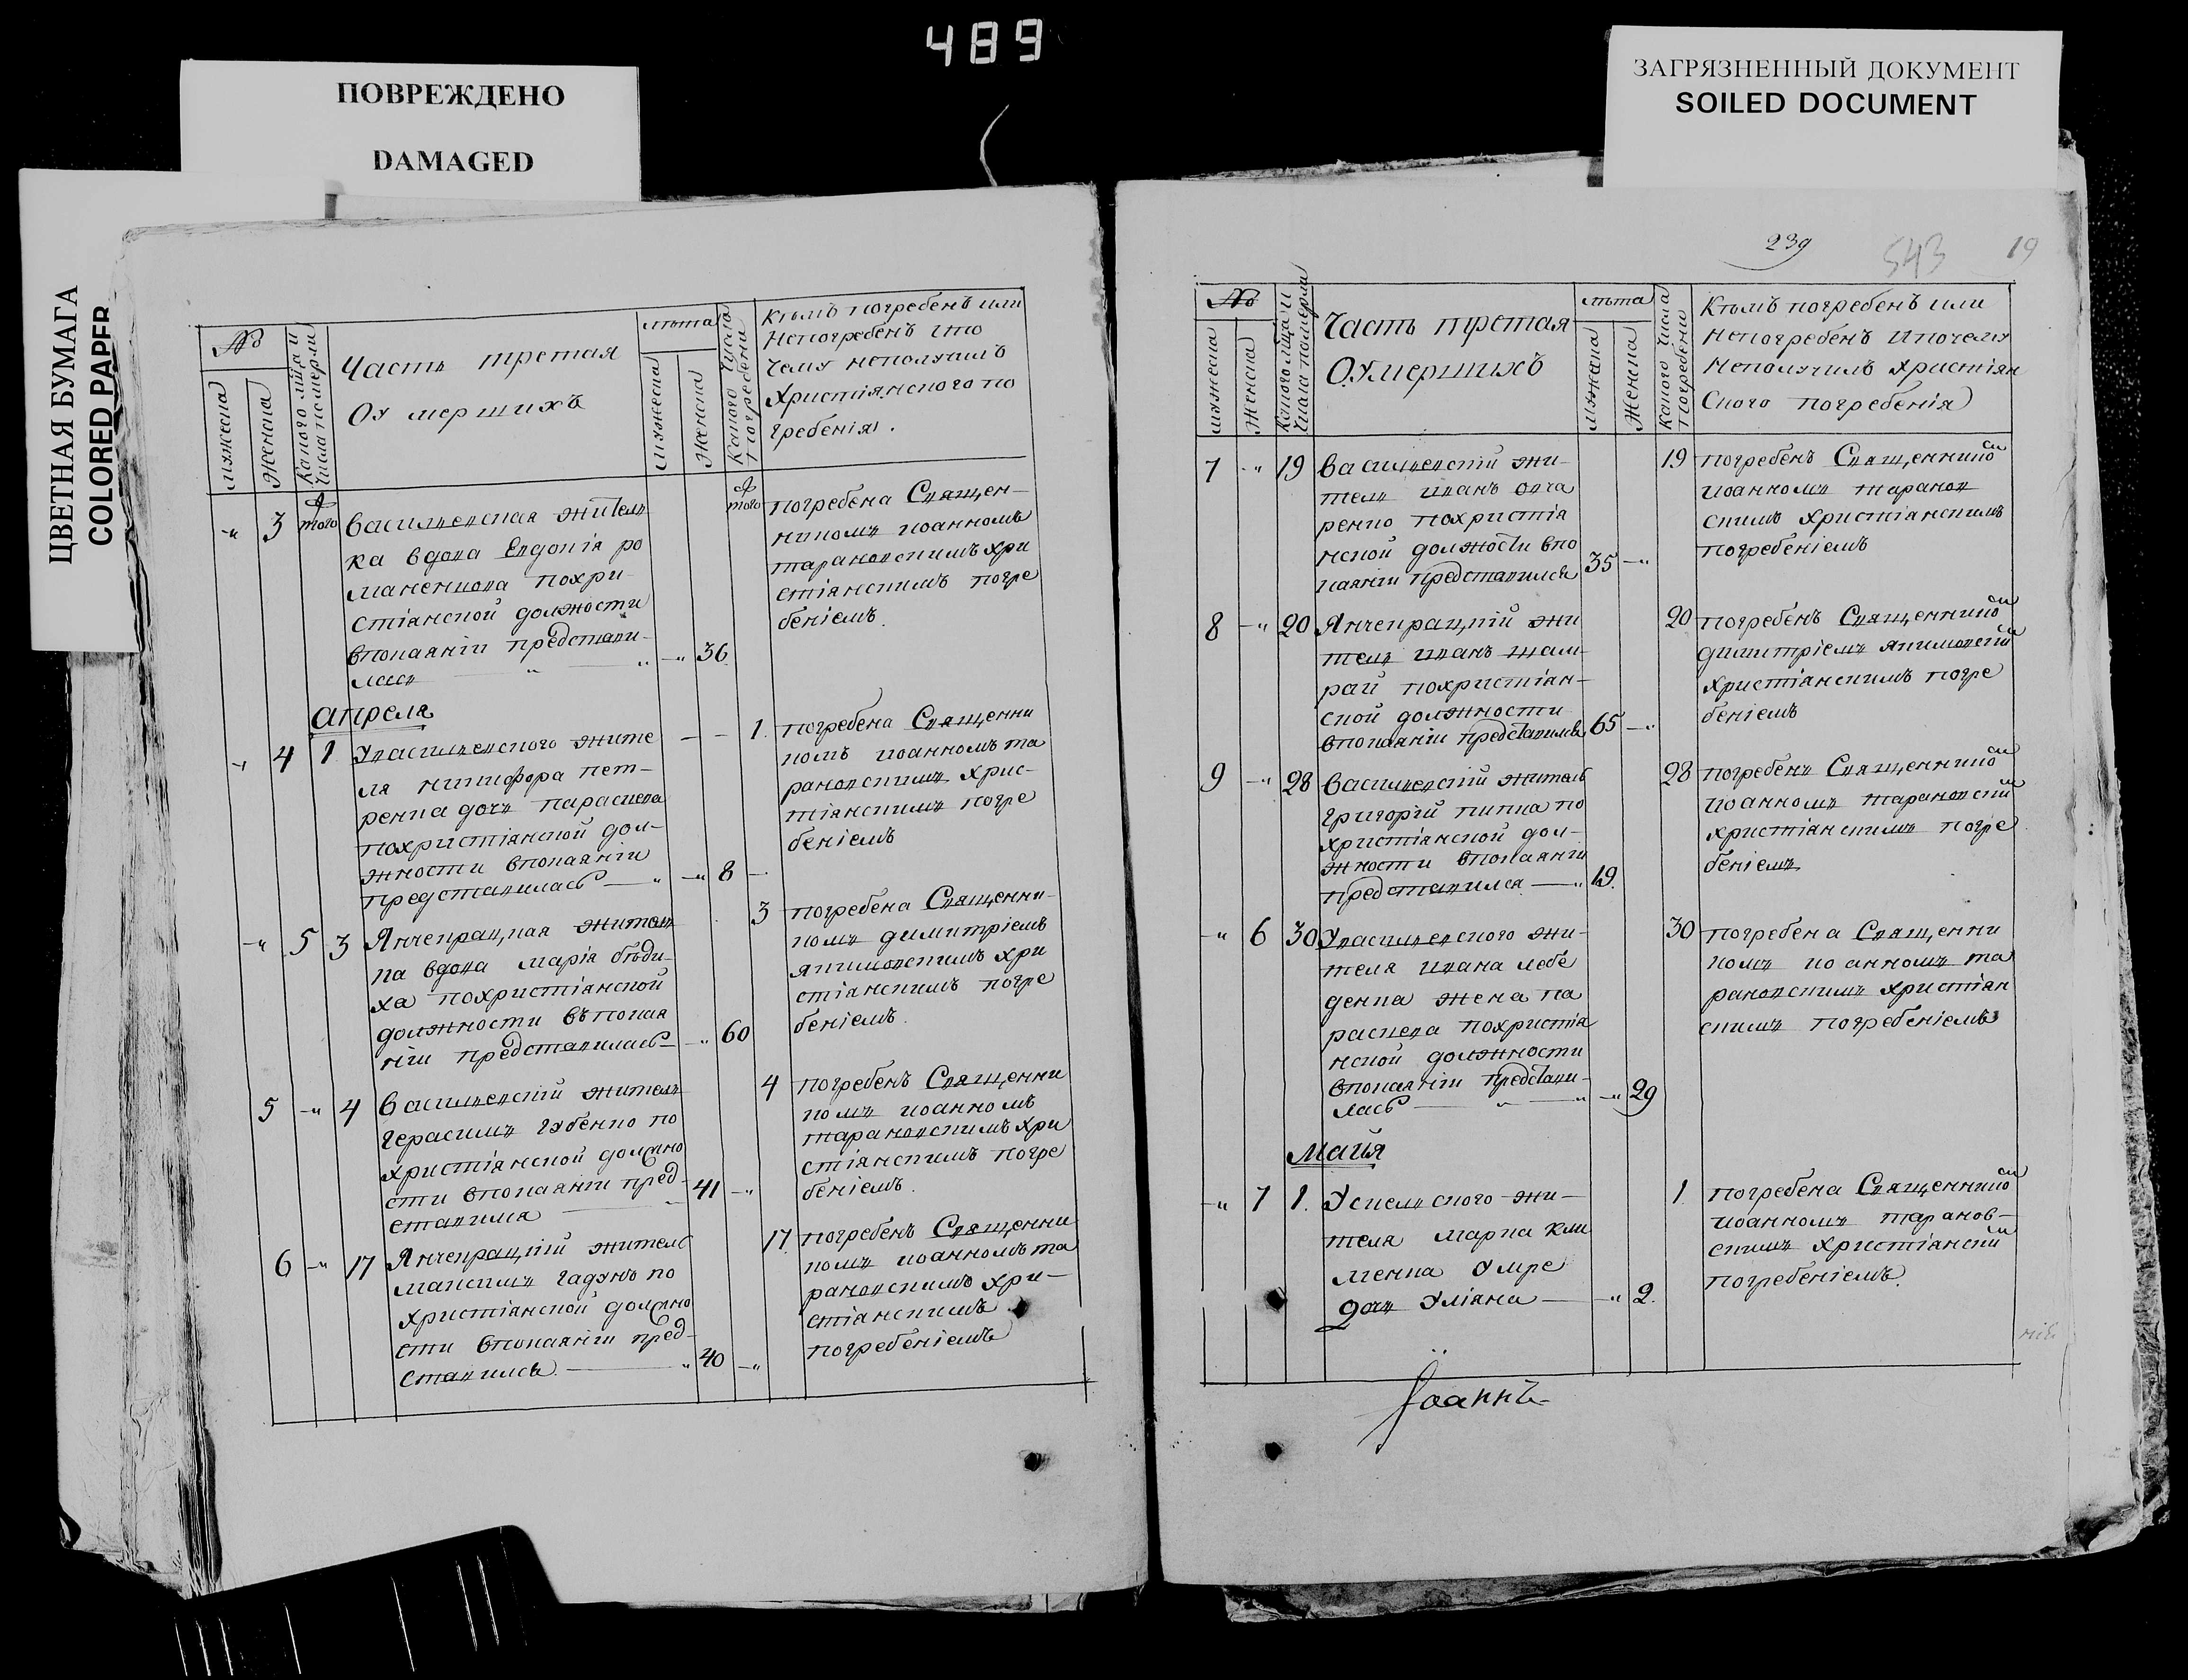 489
ПОВРЕЖДЕНО
DAMAGED
ЗАГРЯЗНЕННЫЙ ДОКУМЕНТ
SOILED DOCUMENT
ЦВЕТНАЯ БУМАГА
COLORED PAPER
№
мужеска
женска
Какого мца и
числа померли
Часть третая
Оумершихъ
лѣта
мужеска
женска
Какого числа
погребени
Кѣмъ погребенъ или
непогребенъ ипо
чему неполучилъ
Христіянского по
гребенія.
-" 3
того
василвевская жителв
ка вдова Евдокія ро
маненкова похри-
стіанской должности
впокаяніи представи-
лась
-" 36
того
погребена Священ-
никомъ иоанномъ
тарановскимъ хри
стіанскимъ погре
беніемъ.
апреля
-" 4 1
Увасилвевского жите
ля никифора пет-
ренка дочъ параскева
похристіанской дол-
жности впокаяніи
представилась
-" 8
1.
погребена Священни
комъ иоанномъ та
рановскимъ хрис-
тіанскимъ погре
беніемъ
-" 5 3
Янчекрацкая жителв
ка вдова марія бѣди-
ха похристіанской
должности въ покая
ніи представилась
-" 60
3
погребена Священни-
комъ димитріемъ
якимовскимъ хри
стіанскимъ погре
беніемъ.
5 -" 4
василвевскій жителв
герасимъ губенко по
христіанской должно
сти впокаяніи пред-
ставился
41 -"
4
погребенъ Священни
комъ иоанномъ
тарановскимъ хри
стіанскимъ погре
беніемъ.
6 -" 17
Янчекрацкій житель
максимъ гадунъ по
христіанской должно
сти впокаяніи пред-
ставился.
40 -"
17.
погребенъ Священни
комъ иоанномъ та
рановскимъ хри-
стіанскимъ
погребеніемъ
239
543
19
№
мужеска
женска
Какого мца и
числа померли
Часть третая
Оумершихъ
лѣта
мужеска
женска
Какого числа
погребени
Кѣмъ погребенъ или
непогребенъ ипочему
неполучилъ христіян
ского погребенія
7 -" 19
василвевскій жи-
телв иванъ овча
ренко похристіа
нской должности впо
каяніи представился
35 -"
19
погребенъ Священнико м
иоанномъ таранов
скимъ христіанскимъ
погребеніемъ
8 -" 20
Янчекрацкій жи
телв иванъ шам-
рай похристіан-
ской должности
впокаяніи представился
65 -"
20
погребенъ Священнико м
димитріемъ якимовский м
христіанскимъ погре
беніемъ
9 -" 28
василвевскій житель
григорій пипка по
христіанской дол-
жности впокаяніи
представился
19.
28
погребенъ Священнико м
иоанномъ тарановски м
христіанскимъ погре
беніемъ
-" 6 30
Увасилвевского жи-
теля ивана лебе
денка жена па
раскева похристіа
нской должности
впокаяніи представи-
лась
-" 29
30
погребена Священни
комъ иоанномъ та
рановскимъ христіан
скимъ погребеніемъ
Маия
-" 7 1.
Ускелского жи-
теля марка кли
менка умре
дочъ Уліана
-" 2.
1
погребена Священнико м
иоанномъ таранов-
скимъ христіански м
погребеніемъ.
Іоаннъ